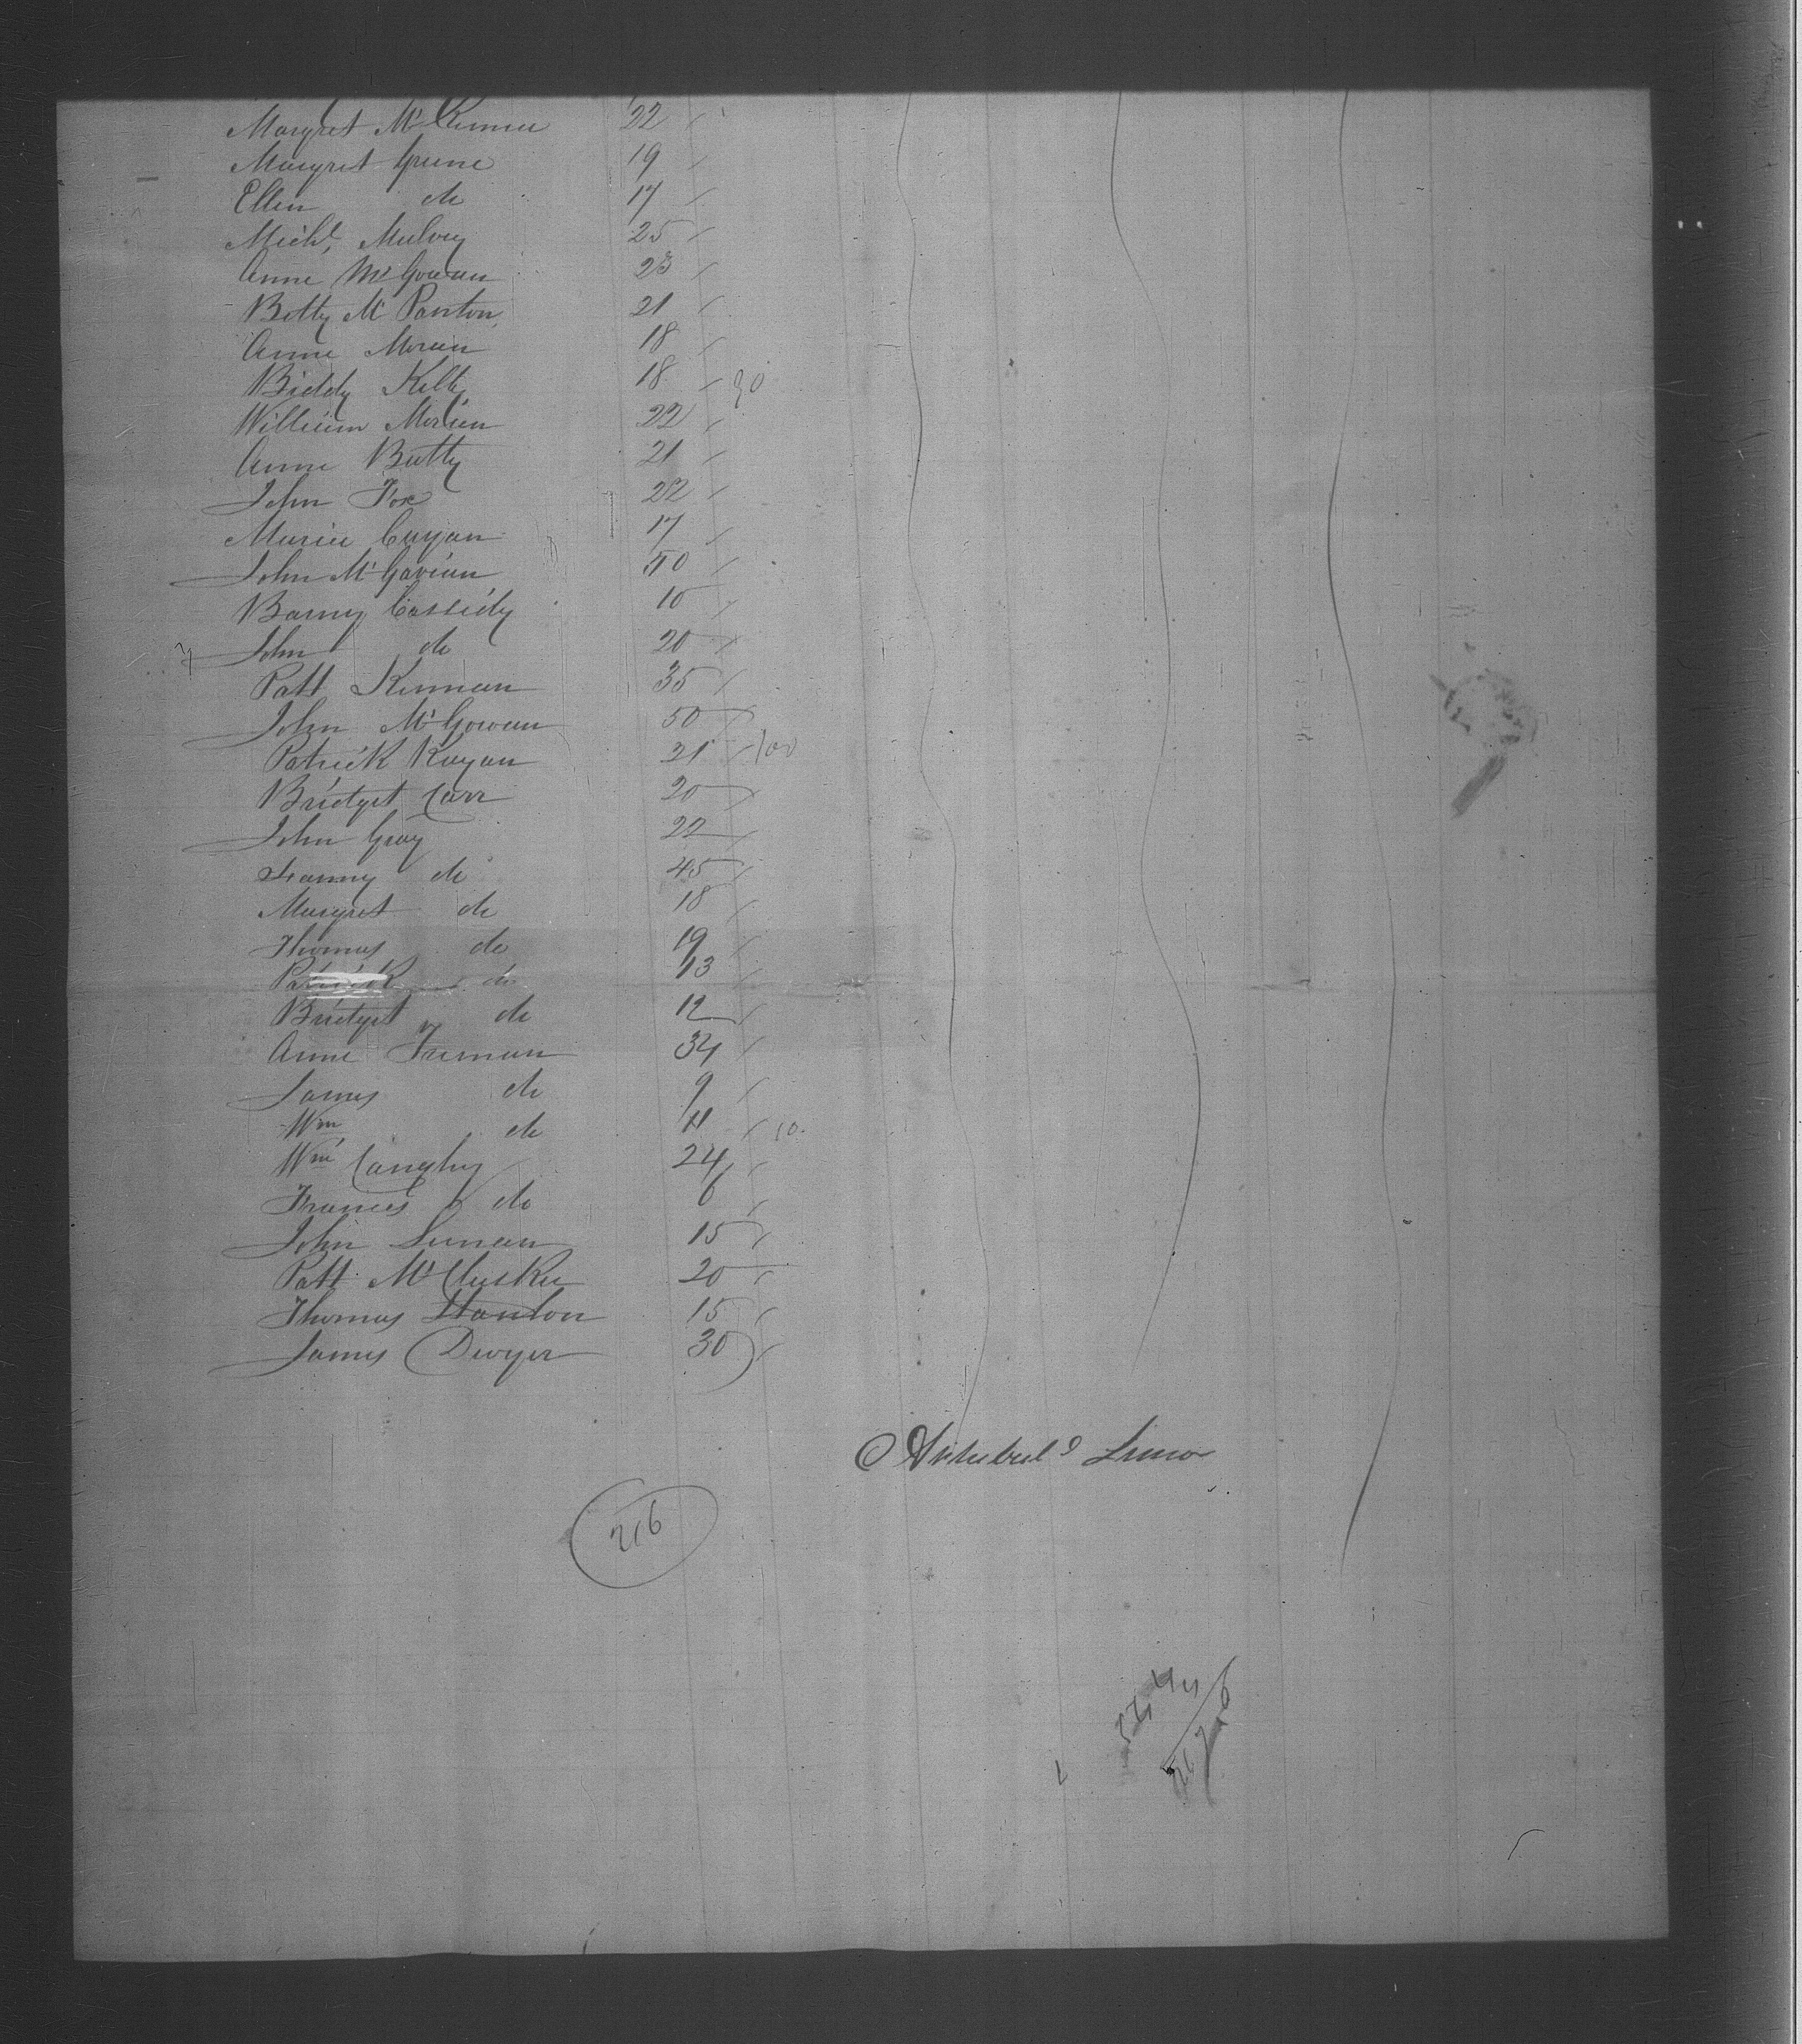 Margret McKinnee 22
Margret Greene 19
Ellen do 17
Michl. Mulvey 25
Anne McGowan 23
Betty Mc Panton 21
Anne Moran 18
Biddy Kelly 18 90
William Morien 22
Anne Butty 21
John Fox 22
Maria Curyan 17
John McGavian 40
Barny Cassidy 10
John do 20
Patt Kernan 35
John McGowan 50
Patrick Ragan 21 100
Bridget Carr 20
John Gray 22
Fanny do 45
Margret do 18
Thomas do 19
Patrick do 13
Bridget do 12
Anne Freman 34
James do 9
Wm do 11 10
Wm Langhy 24
Frances do 6
John Lunan 15
Patt McCluskee 20
Thomas Stanton 15
James Dwyer 30
Archibald
216